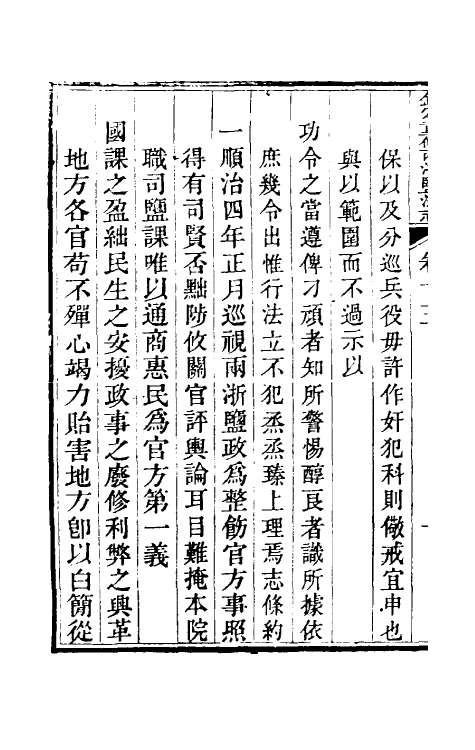 保以及分巡兵役毋許作奸犯科則儆戒宜申也
與以範圍而不過示以
功令之當遵俾刁頑者知所警惕醇良者識所據依
庶幾令出惟行法立不犯烝烝臻上理焉志條約
一順治四年正月巡視兩浙鹽政爲整飭官方事照
得有司賢否黜陟攸關官評輿論耳目難掩本院
職司鹽課唯以通商惠民爲官方第一義
國課之盈絀民生之安擾政事之廢修利弊之興革
地方各官苟不殫心竭力貽害地方卽以白簡從